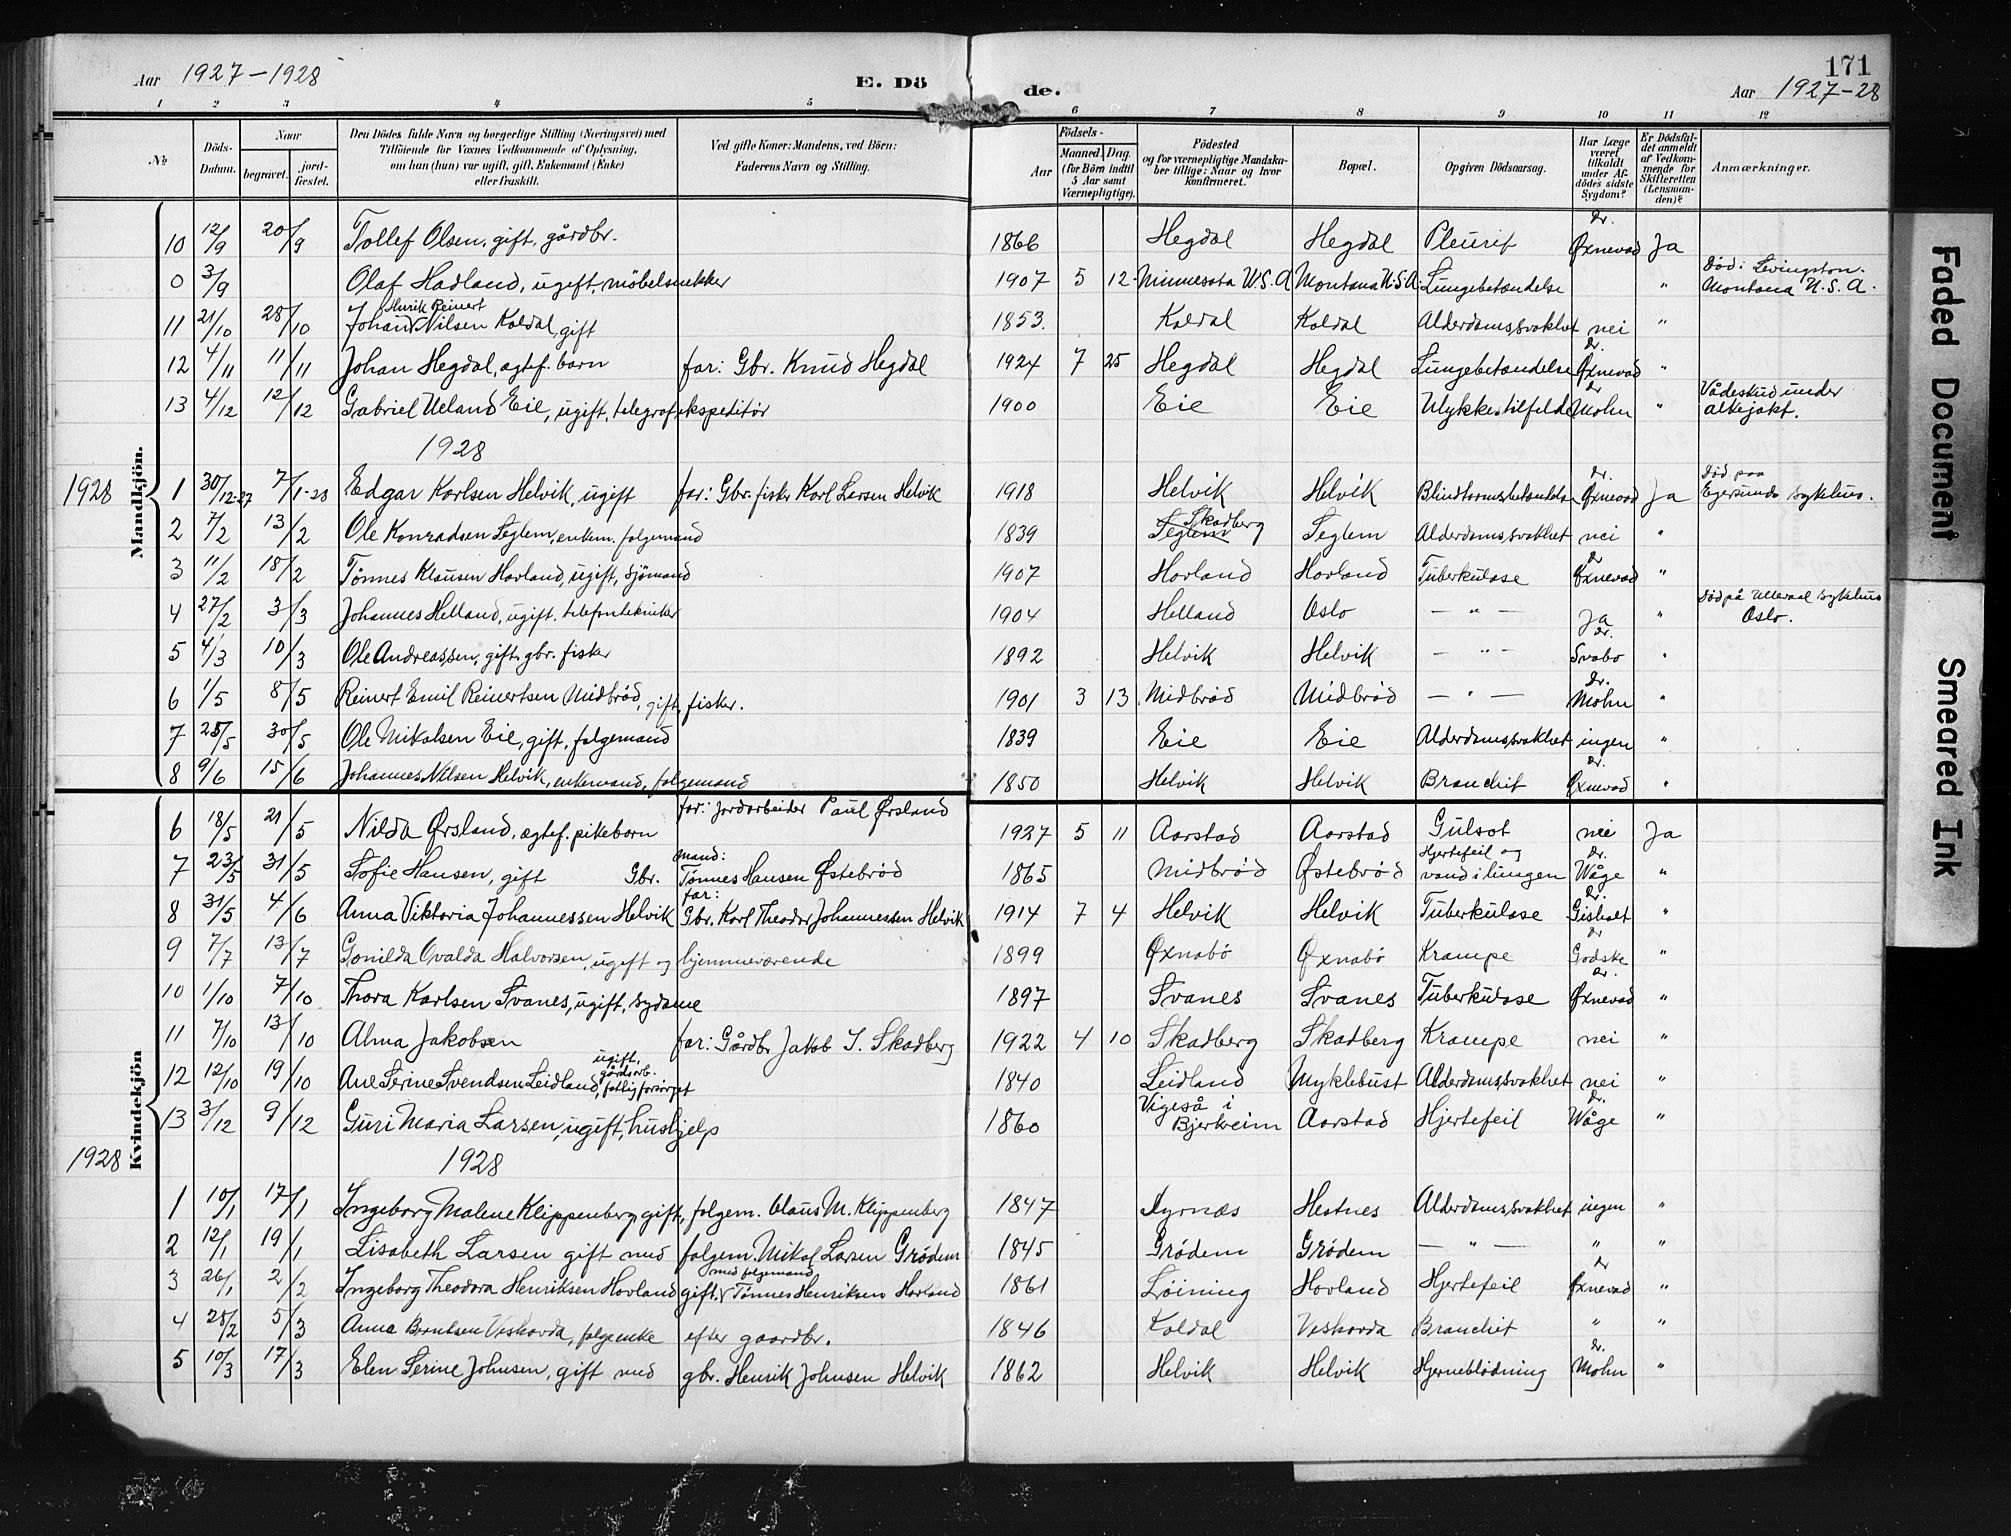 Aar 1927-1928 E. Dö de. 171
Aar 1927-28
1 2 3 4 5 6 7 8 9 10 11 12
No Döds-Datum. Naar begravet. jord-fæstet. Den Dödes fulde Navn og borgerlige Stilling (Næringsvei) med Tilföiende for Voxnes Vedkommende af Oplysning, om han (hun) var ugift, gift, Enkemand (Enke) eller fraskilt. Ved gifte Koner: Mandens, ved Börn: Faderens Navn og Stilling. Födsels- Aar Maaned. Dag. (for Börn indtil 5 Aar samt Værnepligtige). Födested og for værnepligtige Mandska-ber tillige: Naar og hvor konfirmeret. Bopæl. Opgiven Dödsaarsag. Har Læge været tilkaldt under Af-dödes sidste Sygdom? Er Dödsfal-det anmeldt af Vedkom-mende for Skifteretten (Lensman-den)? Anmærkninger.
Mandkjön.
10 12/9 20/9 Tollef Olsen, gift, gårdbr. 1866 Hegdal Hegdal Pleurit dr. Øxnevad Ja
0 3/9 Olaf Hadland, ugift, möbelsnekker 1907 5 12 Minnesota U.S.A Montana U.S.A. Lungebetændelse " Död i Levingston. Montana U.S.A.
11 21/10 28/10 Johan Henrik Reinert Nilsen Koldal, gift 1853. Koldal Koldal Alderdomssvakhet nei "
12 4/11 11/11 Johan Hegdal, egtef. barn far: Gbr. Knud Hegdal 1924 7 25 Hegdal Hegdal Lungebetændelse dr. Øxnevad "
13 4/12 12/12 Gabriel Ueland Eie, ugift, telegrafekspeditör 1900 Eie Eie Ulykkestilfelde dr Mohn " Vådeskud under alkejakt.
1928
1928 1 30/12-27 7/1-28 Edgar Karlsen Helvik, ugift far: Gbr. fisker Karl Larsen Helvik 1918 Helvik Helvik Blindtarmsbetændelse dr. Øxnevad Ja Död paa Egersunds sykehus.
2 7/2 13/2 Ole Konradsen Seglem, enkem. folgemand 1839 Seglem Skadberg Seglem Alderdomssvakhet nei "
3 11/2 18/2 Tönnes Klausen Hovland, ugift, sjömand 1907 Hovland Hovland Tuberkulose dr Øxnevad "
4 27/2 3/3 Johannes Helland, ugift. telefontekniker 1904 Helland Oslo — " — Ja " Död på Ullevaal sykehus Oslo.
5 4/3 10/3 Ole Andreassen, gift gbr. fisker 1892 Helvik Helvik — " — dr. Svabo "
6 1/5 8/5 Reinert Emil Reinertsen Midbröd, gift, fisker. 1901 3 13 Midbröd Midbröd — " — dr. Mohn "
7 25/5 30/5 Ole Mikalsen Eie, gift, folgemand 1839 Eie Eie Alderdomssvakhet ingen "
8 9/6 15/6 Johannes Nilsen Helvik, enkemand, folgemand 1850 Helvik Helvik Bronchit dr. Øxnevad "
Kvindekjön
6 18/5 21/5 Nilda Ørsland, egtef. pikebarn far: Jordarbeider Paul Ørsland 1927 5 11 Aarstad Aarstad Gulsot nei Ja
7 23/5 31/5 Sofie Hansen, gift Gbr. mand: Tønnes Hansen Østebröd 1865 Midbrød Østebrød Hjertefeil og vand i lungen dr. Wåge "
8 31/5 4/6 Anna Viktoria Johannessen Helvik far: Gbr. Karl Theodor Johannessen Helvik 1914 7 4 Helvik Helvik Tuberkulose dr. Gisholt "
9 7/7 13/7 Gonilda Ovalda Halvorsen, ugift og hjemmeværende 1899 Øxnabö Øxnabö Krampe dr Godske "
10 1/10 7/10 Thora Karlsen Svanes, ugift, sydame 1897 Svanes Svanes Tuberkulose dr. Øxnevad "
11 7/10 13/10 Alma Jakobsen far: Gårdbr Jakob I. Skadberg 1922 4 10 Skadberg Skadberg Krampe nei "
12 12/10 19/10 Ane Serine Svendsen Leidland, ugift, gårdsarb. fatligforsörget 1840 Leidland Myklebust Alderdomssvakhet nei "
13 3/12 9/12 Guri Maria Larsen, ugift, hushjelp 1860 Vigeså i Bjerkreim Aarstad Hjertefeil dr. Wåge "
1928 1928
1 10/1 17/1 Ingeborg Malene Klippenberg, gift, folgem. Claus M. Klippenberg 1847 Nyrnæs Hestnes Alderdomssvakhet ingen "
2 12/1 19/1 Lisabeth Larsen gift med folgem. Mikal Larsen Grödem 1845 Grødem Grødem — " — " "
3 26/1 2/2 Ingeborg Theodora Henriksen Hovland gift med folgemand Tönnes Henriksen Hovland 1861 Löining Hovland Hjertefeil dr Øxnevad "
4 28/2 5/3 Anna Berntsen Veshovda, folgeenke efter gaardbr. 1846 Koldal Veshovda Bronchit " "
5 10/3 17/3 Elen Serine Johnsen, gift med gbr. Henrik Johnsen Helvik 1862 Helvik Helvik Hjerneblödning dr. Mohn "
Faded Document
Smeared Ink